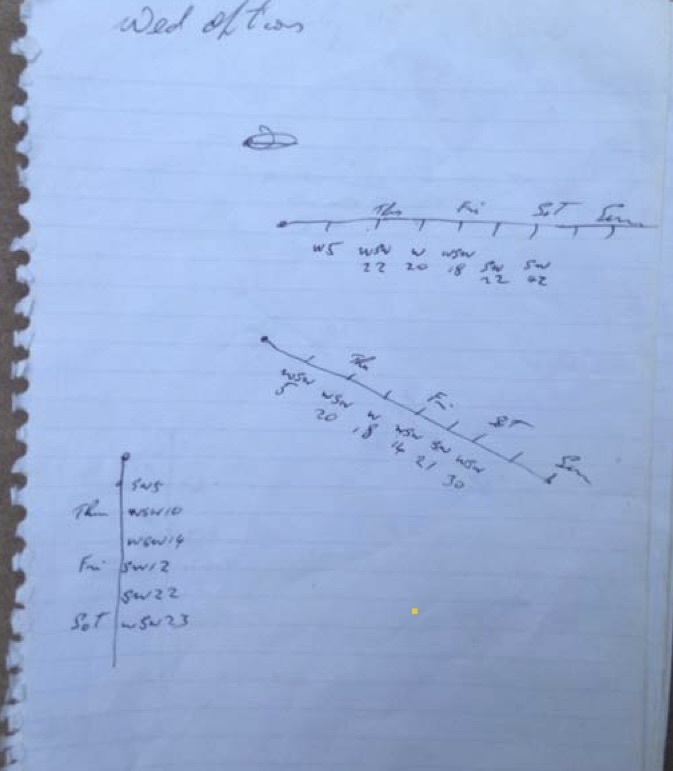 Wed
Thu Fri SaT Sun
W5 WSW W WSW SW SW
22 20 18 22 42
Thu
WSW Fri
5 WSW SaT
20 W
18 WSW SW WSW Sun
14 21 30
SW5
Thu WSW10
WSW14
Fri SW12
SW22
SaT WSW23